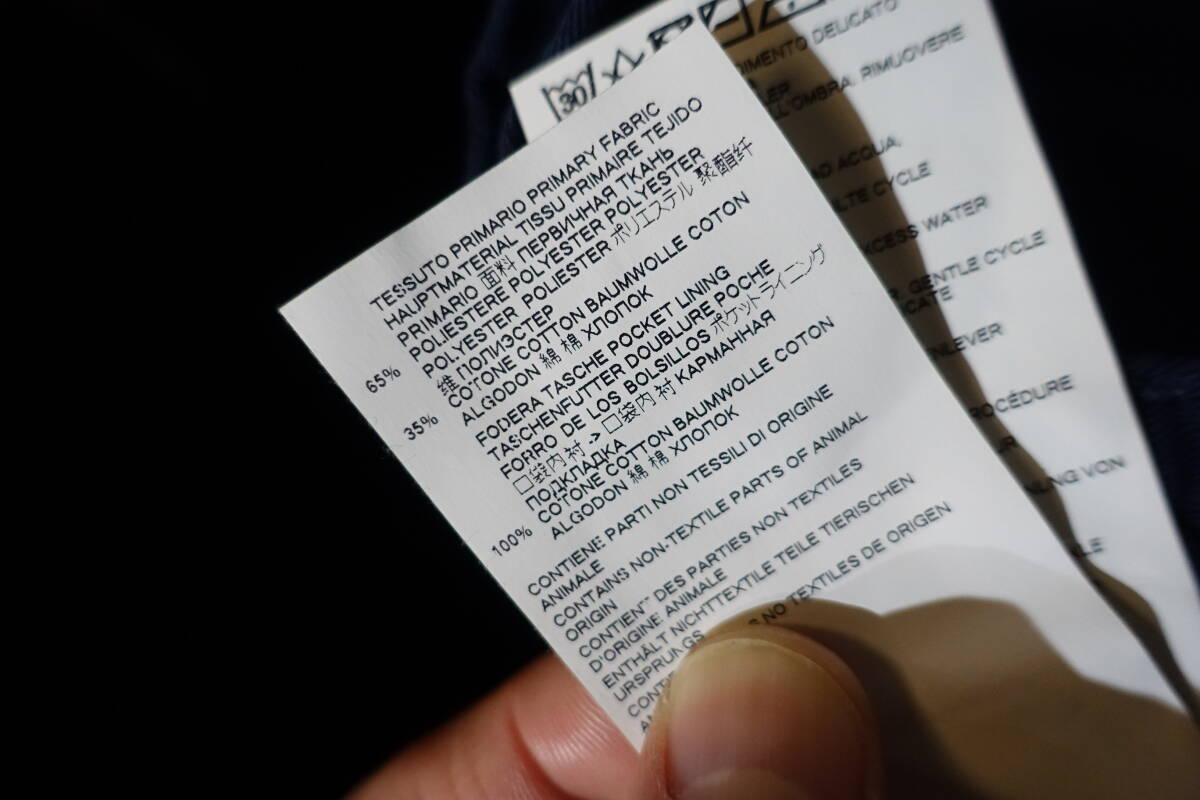 TESSUTO PRIMARIO PRIMARY FABRIC
HAUPTMATERIAL TISSU PRIMAIRE TEJIDO
PRIMARIO 面料 ПЕРВИЧНАЯ ТКАНЬ
65% POLIESTERE POLYESTER POLYESTER
POLYESTER POLIESTER ポリエステル 聚酯纤
维 ПОЛИЭСТЕР
35% COTONE COTTON BAUMWOLLE COTON
ALGODON 綿 棉 ХЛОПОК
FODERA TASCHE POCKET LINING
TASCHENFUTTER DOUBLURE POCHE
FORRO DE LOS BOLSILLOS ポケットライニング
口袋内衬 -> 口袋内衬 КАРМАННАЯ
ПОДКЛАДКА
100% COTONE COTTON BAUMWOLLE COTON
ALGODON 綿 棉 ХЛОПОК
CONTIENE PARTI NON TESSILI DI ORIGINE
ANIMALE
CONTAINS NON-TEXTILE PARTS OF ANIMAL
ORIGIN
CONTIENT DES PARTIES NON TEXTILES
D'ORIGINE ANIMALE
ENTHÄLT NICHTTEXTILE TEILE TIERISCHEN
URSPRUNGS
NO TEXTILES DE ORIGEN
30
DELICATO
ALL'OMBRA. RIMUOVERE
ACQUA,
CYCLE
WATER
GENTLE CYCLE
VON